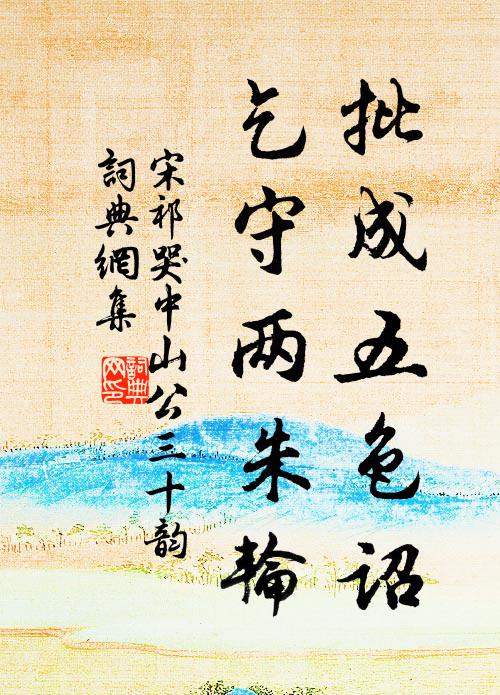 批成五色诏
乞守两朱輪
宋祁哭中山公三十韵
詞典網集
詞典网印